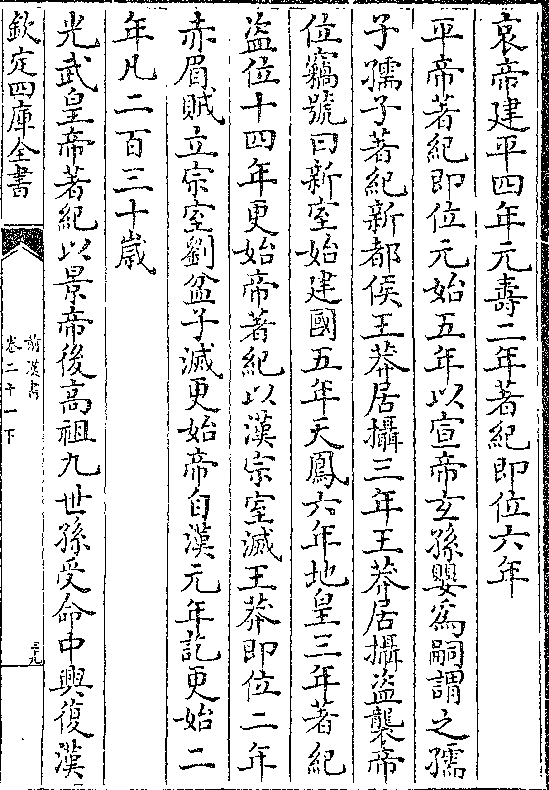 哀帝建平四年元壽二年著紀即位六年
平帝著紀即位元始五年以宣帝玄孫嬰為嗣謂之孺
子孺子著紀新都侯王莽居攝三年王莽居攝盜襲帝
位竊號曰新室始建國五年天鳳六年地皇三年著紀
盜位十四年更始帝著紀以漢宗室滅王莽即位二年
赤眉賊立宗室劉盆子滅更始帝自漢元年訖更始二
年凡二百三十歲
光武皇帝著紀以景帝後高祖九世孫受命中興復漢
欽定四庫全書
前漢書
卷二十一下
三九